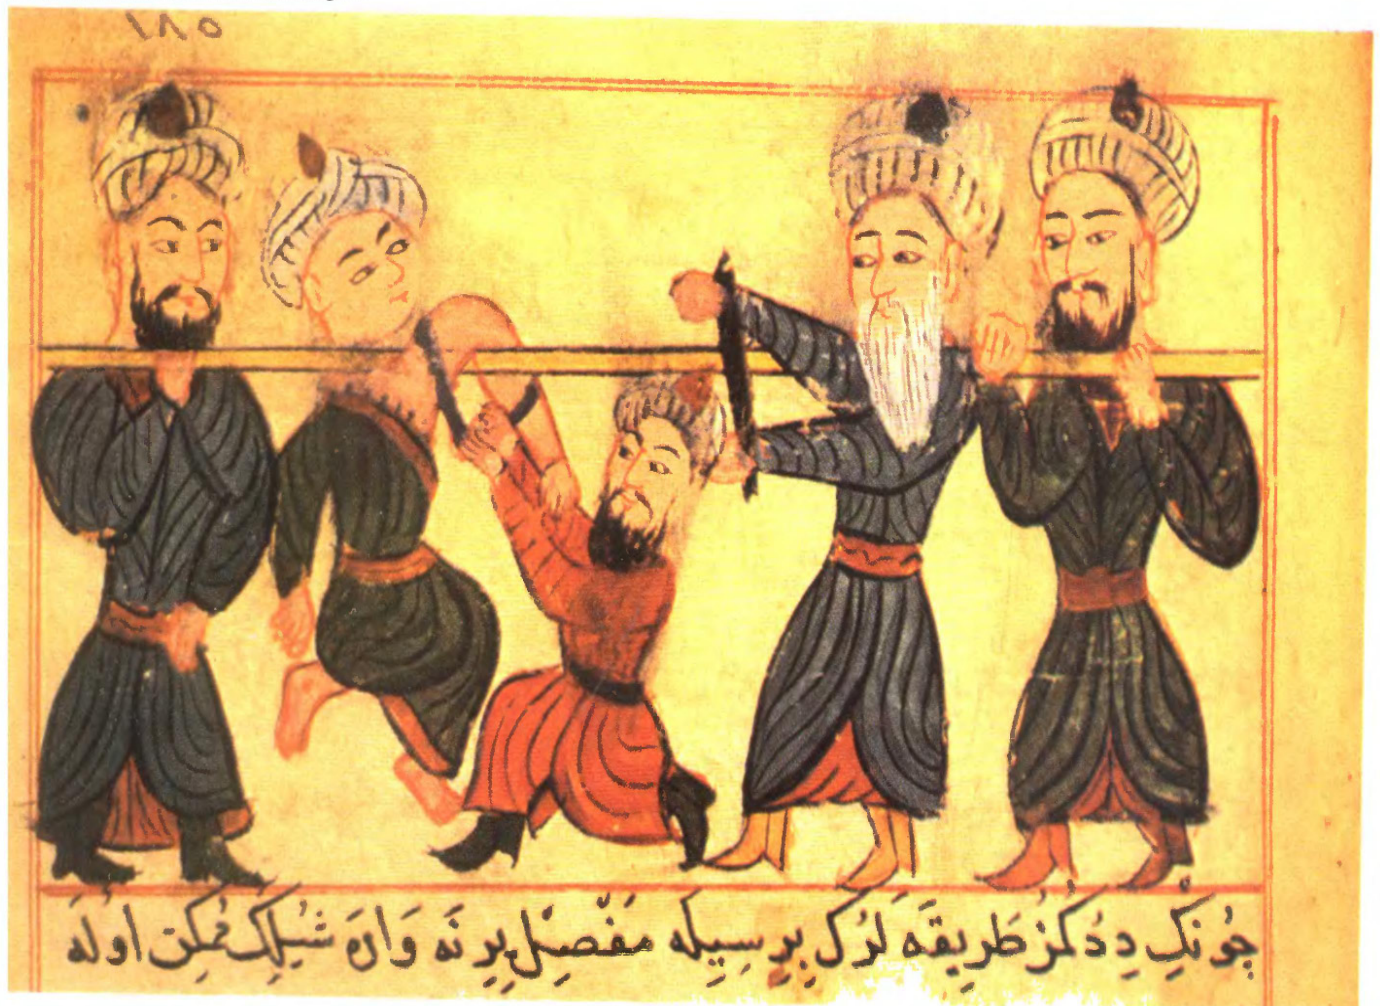 ١٨٥
چُونْكِ دِدُكُمُزْ طَرِيقَه لَرُكْ بِرِسِيلَه مَفْصِلْ يِرِنَه وَارَه شُيلَكِ مُمْكِن اوُلَه